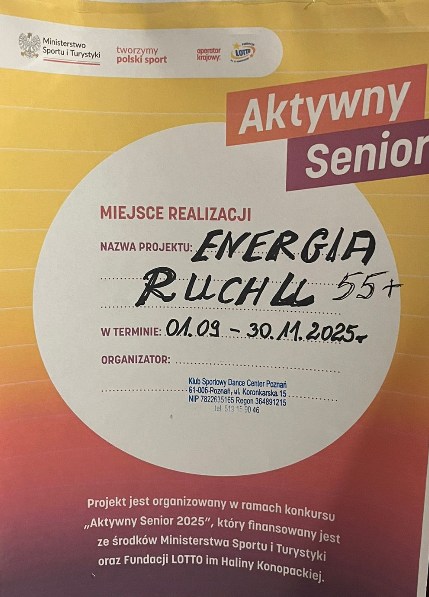 Ministerstwo
Sportu i Turystyki
tworzymy
polski sport
operator
krajowy:
LOTTO
Aktywny
Senior
MIEJSCE REALIZACJI
NAZWA PROJEKTU: ENERGIA
RUCHU 55+
W TERMINIE: 01.09 - 30.11.2025r
ORGANIZATOR:
Klub Sportowy Dance Center Poznań
61-006 Poznań, ul. Koronkarska 15
NIP 7822635165 Regon 364891215
Projekt jest organizowany w ramach konkursu
„Aktywny Senior 2025”, który finansowany jest
ze środków Ministerstwa Sportu i Turystyki
oraz Fundacji LOTTO im Haliny Konopackiej.